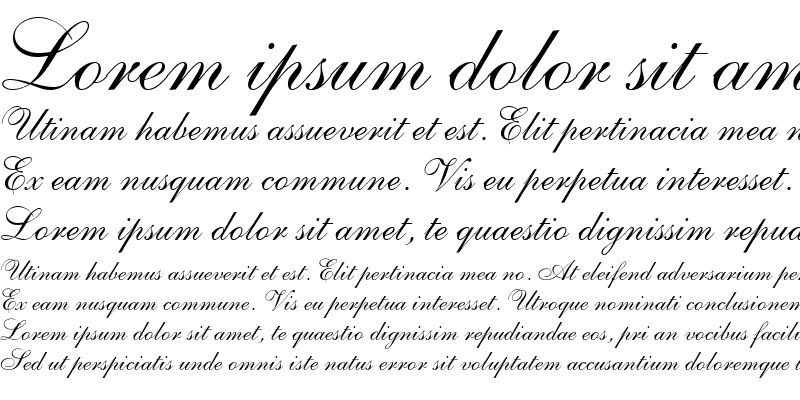 Lorem ipsum dolor sit am
Utinam habemus assueverit et est. Elit pertinacia mea n
Ex eam nusquam commune. Vis eu perpetua interesset.
Lorem ipsum dolor sit amet, te quaestio dignissim repud
Utinam habemus assueverit et est. Elit pertinacia mea no. At eleifend adversarium per
Ex eam nusquam commune. Vis eu perpetua interesset. Utroque nominati conclusionem
Lorem ipsum dolor sit amet, te quaestio dignissim repudiandae eos, pri an vocibus facili
Sed ut perspiciatis unde omnis iste natus error sit voluptatem accusantium doloremque